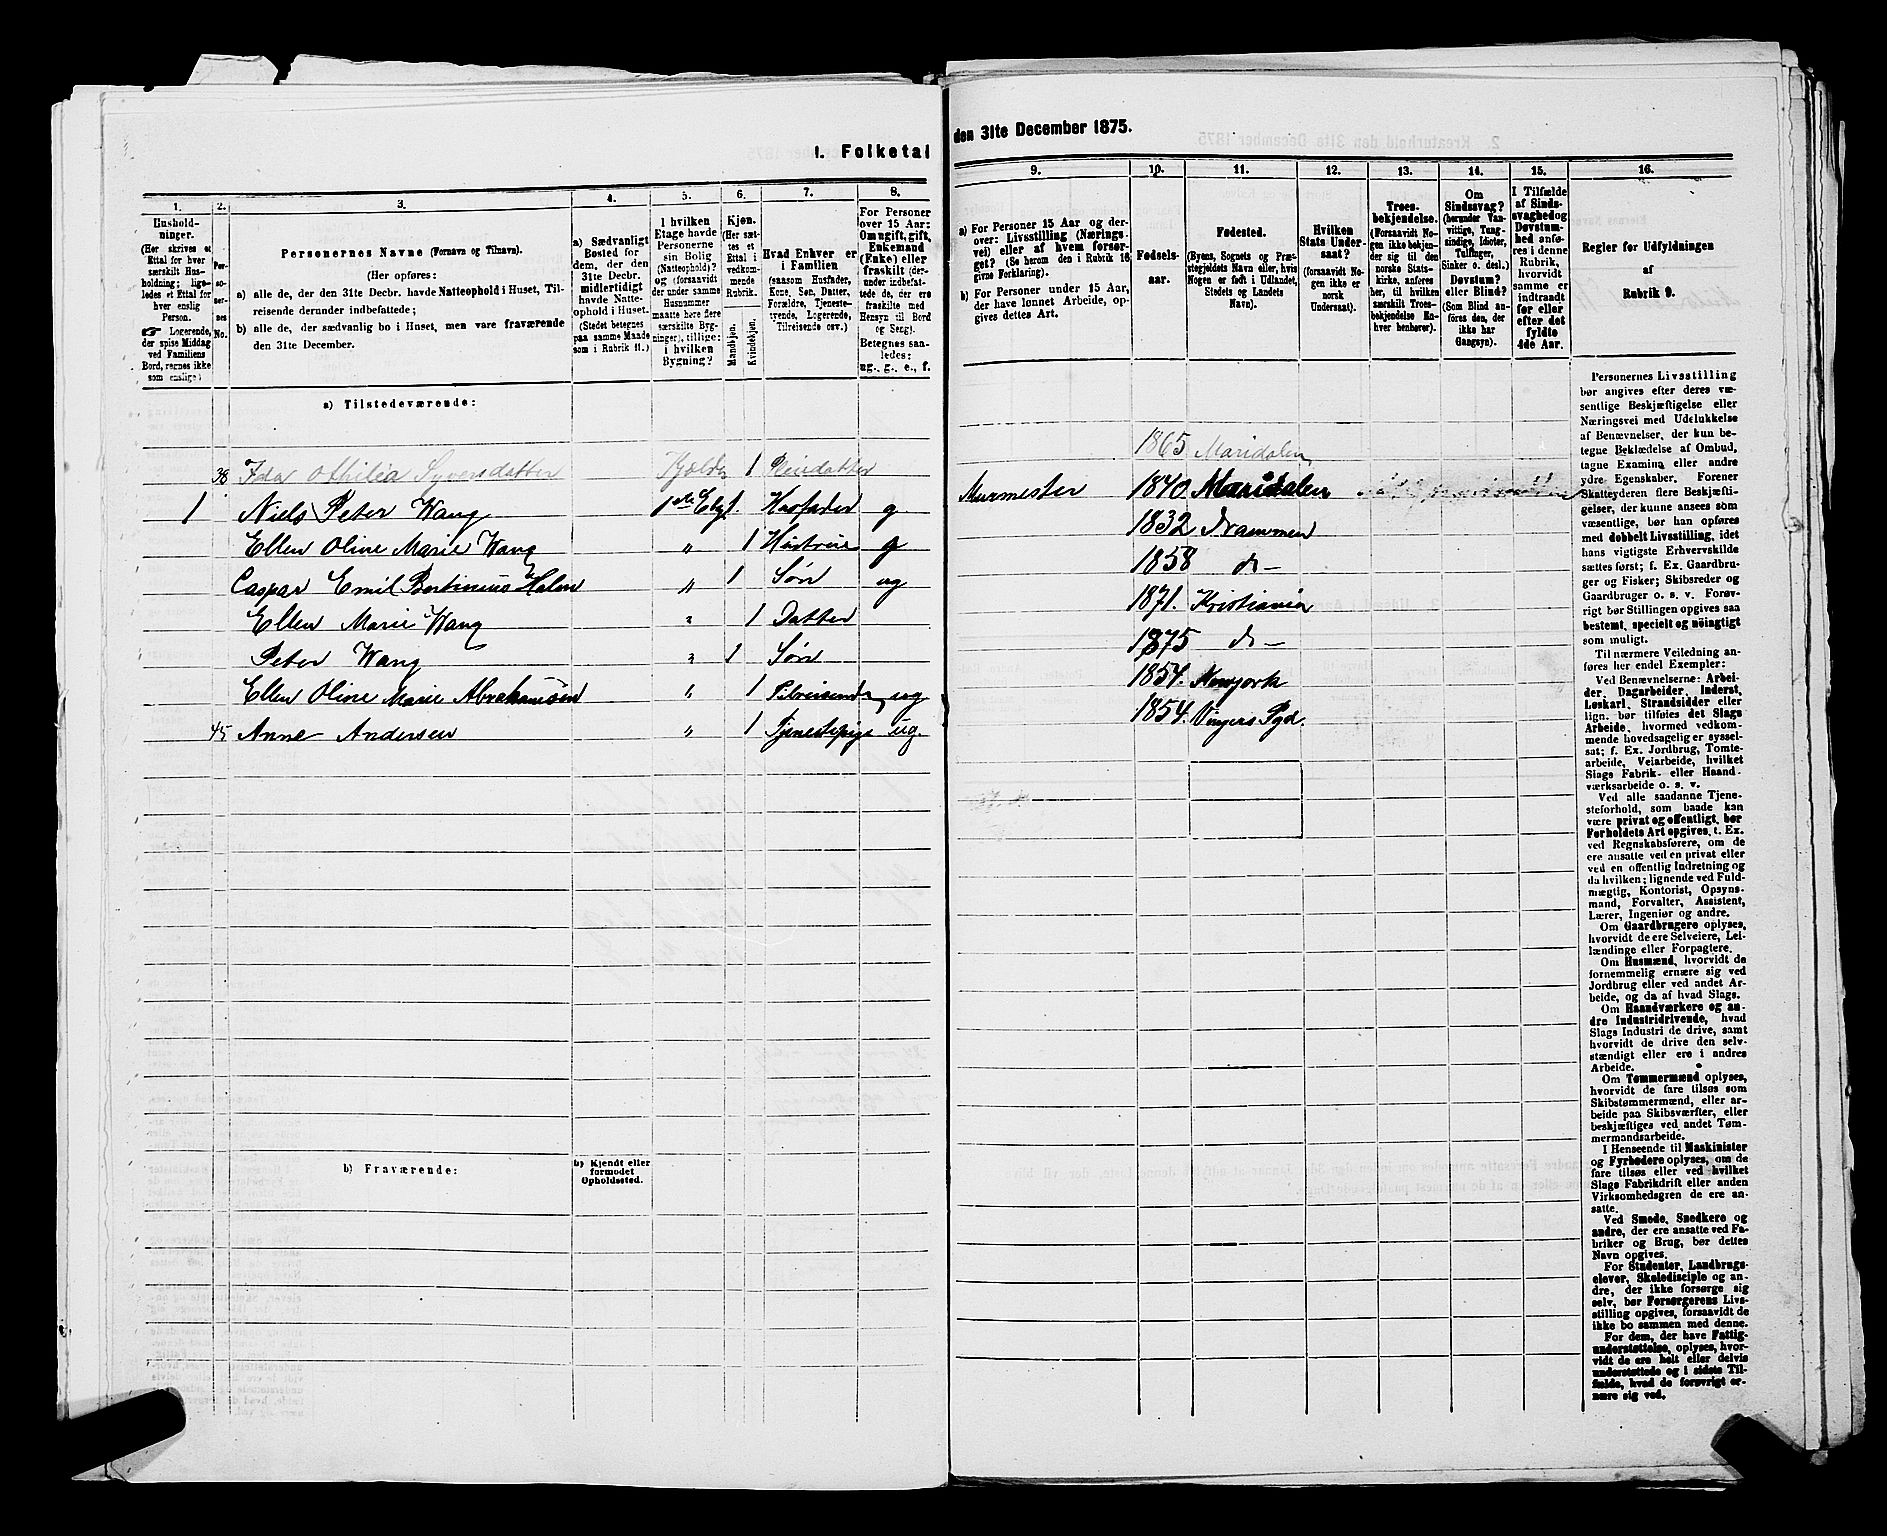 I. Folketal
den 31te December 1875.
1. 2. 3. 4. 5. 6. 7. 8.
9. 10. 11. 12. 13. 14. 15. 16.
Husholdninger.
(Her skrives et
Ettal for hver
særskilt Husholdning;
ligeledes et Ettal for
hver enslig
Person.
☞ Logerende,
der spise Middag
ved Familiens
Bord, regnes ikke
som enslige)
Personernes No.
Personernes Navne (Fornavn og Tilnavn).
(Her opføres:
a) alle de, der den 31te Decbr. havde Natteophold i Huset, Tilreisende
derunder indbefattede;
b) alle de, der sædvanlig bo i Huset, men vare fraværende
den 31te December.
a) Sædvanligt
Bosted for
dem, der den
31te Decbr.
midlertidigt
havde Natteophold
i Huset.
(Stedet betegnes
paa samme Maade
som i Rubrik 11.)
I hvilken
Etage havde
Personerne
sin Bolig
(Natteophold)?
(og forsaavidt
der under samme
Husnummer
maatte høre flere
særskilte Bygninger),
tillige:
i hvilken
Bygning?
Kjøn.
(Her sættes
et
Ettal i
vedkommende
Rubrik.
Mandkjøn.
Kvindekjøn.
Hvad Enhver er
i Familien
(saasom Husfader,
Kone, Søn, Datter,
Forældre, Tjenestetyende,
Logerende,
Tilreisende osv.)
For Personer
over 15 Aar:
Om ugift, gift,
Enkemand
(Enke) eller
fraskilt (derunder
indbefattede
de, der ere
fraskilte med
Hensyn til Bord
og Seng).
Betegnes saaledes:
ug., g., e., f.
a) For Personer 15 Aar og derover:
Livsstilling (Næringsvei)
eller af hvem forsørget?
(Se herom den i Rubrik 16
givne Forklaring).
b) For Personer under 15 Aar,
der have lønnet Arbeide, opgives
dettes Art.
Fødselsaar.
Fødested.
(Byens, Sognets og Præstegjeldets
Navn eller, hvis
Nogen er født i Udlandet,
Stedets og Landets
Navn).
Hvilken
Stats Undersaat?
(forsaavidt Nogen
ikke er
norsk
Undersaat).
Troesbekjendelse.
(Forsaavidt Nogen
ikke bekjender
sig til den
norske Statskirke,
anføres
her, til hvilken
særskilt Troesbekjendelse
Enhver
henhører).
Om
Sindssvag?
(herunder Vanvittige,
Tungsindige,
Idioter,
Tullinger,
Sinker o. desl.)
Døvstum?
eller Blind?
(Som Blind anføres
den, der
ikke har
Gangsyn).
I Tilfælde
af Sindssvaghed
og
Døvstumhed
anføres
i denne
Rubrik,
hvorvidt
samme er
indtraadt
før eller
efter det
fyldte
4de Aar.
Regler for Udfyldningen
af
Rubrik 9.
a) Tilstedeværende:
38 Ida Othilia Syversdatter Kjælder 1 Pleiedatter 1865 Maridalen
1 Niels Peter Wang 1ste Etage. Husfader g Murmester 1840 Maridalen
Ellen Oline Marie Wang " 1 Hustrue g 1832 Drammen
Caspar Emil Bertinius Holm " 1 Søn ug 1858 do-
Ellen Marie Wang " 1 Datter 1871. Kristiania
Peter Wang " 1 Søn 1875 do-
Ellen Oline Marie Abrahamsen " 1 Tilreisende ug 1857. Newjork
45 Anne Andersen " 1 Tjenestepige ug 1854. Vingers Pgd.
b) Fraværende:
b) Kjendt eller
formodet
Opholdssted.
Personernes Livsstilling
bør angives efter deres væsentlige
Beskjæftigelse eller
Næringsvei med Udelukkelse
af Benævnelser, der kun betegne
Beklædelse af Ombud,
tagne Examina eller andre
ydre Egenskaber. Forener
Skatteyderen flere Beskjæftigelser,
der kunne ansees som
væsentlige, bør han opføres
med dobbelt Livsstilling, idet
hans vigtigste Erhvervskilde
sættes først; f. Ex. Gaardbruger
og Fisker; Skibsreder og
Gaardbruger o. s. v. Forøvrigt
bør Stillingen opgives saa
bestemt, specielt og nøiagtigt
som muligt.
Til nærmere Veiledning anføres
her endel Exempler:
Ved Benævnelserne: Arbeider,
Dagarbeider, Inderst,
Løskarl, Strandsidder eller
lign. bør tilføies det Slags
Arbeide, hvormed vedkommende
hovedsagelig er sysselsat;
f. Ex. Jordbrug, Tomtearbeide,
Veiarbeide, hvilket
Slags Fabrik- eller Haandværksarbeide
o. s. v.
Ved alle saadanne Tjenesteforhold,
som baade kan
være privat og offentligt, bør
Forholdets Art opgives, t. Ex.
ved Regnskabsførere, om de
ere ansatte ved en privat eller
ved en offentlig Indretning og
da hvilken; lignende ved Fuldmægtig,
Kontorist, Opsynsmand,
Forvalter, Assistent,
Lærer, Ingeniør og andre.
Om Gaardbrugere oplyses,
hvorvidt de ere Selveiere, Leilændinge
eller Forpagtere.
Om Husmænd, hvorvidt de
fornemmelig ernære sig ved
Jordbrug eller ved andet Arbeide,
og da af hvad Slags.
Om Haandværkere og andre
Industridrivende, hvad
Slags Industri de drive, samt
hvorvidt de drive den selvstændigt
eller ere i andres
Arbeide.
Om Tømmermænd oplyses,
hvorvidt de fare tilsøs som
Skibstømmermænd, eller arbeide
paa Skibsværfter, eller
beskjæftiges ved andet Tømmermandsarbeide.
I Henseende til Maskinister
og Fyrbødere oplyses, om de
fare tilsøs eller ved hvilket
Slags Fabrikdrift eller anden
Virksomhedsgren de ere ansatte.
Ved Smede, Snedkere og
andre, der ere ansatte ved Fabriker
og Brug, bør dettes
Navn opgives.
For Studenter, Landbrugselever,
Skoledisciple og andre,
der ikke forsørge sig
selv, bør Forsørgerens Livsstilling
opgives, forsaavidt de
ikke bo sammen med denne.
For dem, der have Fattigunderstøttelse,
oplyses, hvorvidt
de ere helt eller delvis
understøttede og i sidste Tilfælde,
hvad de forøvrigt ernære
sig ved.